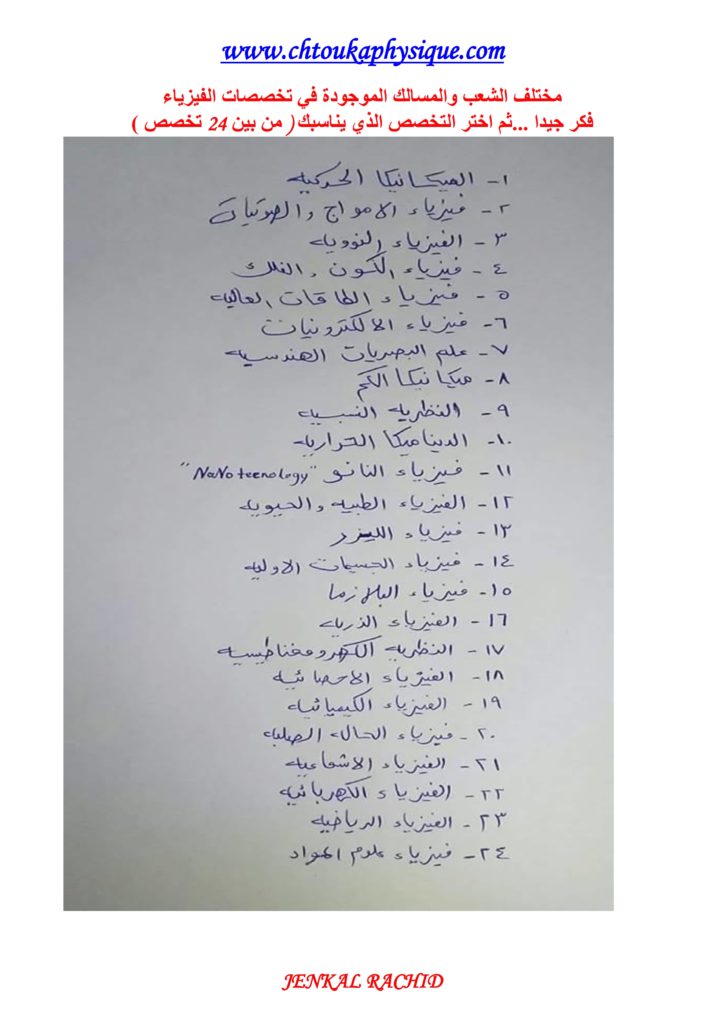 www.chtoukaphysique.com
مختلف الشعب والمسالك الموجودة في تخصصات الفيزياء
فكر جيدا ...ثم اختر التخصص الذي يناسبك( من بين 24 تخصص )
١- الميكانيكا الحركيه
٢- فيزياء الامواج والصوتيات
٣- الفيزياء النوويه
٤- فيزياء الكون والفلك
٥- فيزياء الطاقات العاليه
٦- فيزياء الالكترونيات
٧- علم البصريات الهندسيه
٨- ميكانيكا الكم
٩- النظريه النسبيه
١٠- الديناميكا الحراريه
١١- فيزياء النانو "NaNoteenology"
١٢- الفيزياء الطبيه والحيويه
١٣- فيزياء الليزر
١٤- فيزياء الجسيمات الاوليه
١٥- فيزياء البلازما
١٦- الفيزياء الذريه
١٧- النظريه الكهرومغناطيسيه
١٨- الفيزياء الاحصائيه
١٩- الفيزياء الكيميائيه
٢٠- فيزياء الحاله الصلبه
٢١- الفيزياء الاشعاعيه
٢٢- الفيزياء الكهربائيه
٢٣- الفيزياء الرياضيه
٢٤- فيزياء علوم المواد
JENKAL RACHID